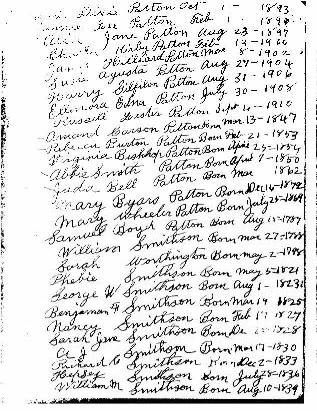 Patton Oct 1 - 1893
Patton Feb 1 -
Jane Patton Aug 23 - 1897
Kirby Patton Feb
Hilliard Patton Mar 8 - 1902
Agusta Patton Aug 27 - 1904
Harry Patton Aug 31 - 1906
Elinora Edna Patton July 30 - 1908
Russell Lester Patton Sept 4 - 1910
Amand Carson Patton Born Mar 13 - 1847
Rebecca Patton Born Feb 21 - 1853
Virginia Bishop Patton Born Apr 25 - 1854
Abbie Smith Patton Born April 7 - 1850
Juda Bell Patton Born Mar 1862
Mary Byars Patton Born Dec 14 - 1872
Mary Wheeler Patton Born July 25 - 1869
Samuel Boyd Patton Born Aug 1787
William Smithson Born Mar 27 - 1788
Sarah Worthington Born May 2 - 1798
Phebie Smithson Born May 5 - 1821
George W Smithson Born Aug 1 - 1823
Benjaman F Smithson Born Mar 14 1825
Nancy Smithson Born Feb 17 1827
Sarah Jane Smithson Born Dec 1828
A S Smithson Born Mar 17 - 1830
Richard C Smithson Born Dec 2 - 1833
Hersey Smithson Born July 28 - 1836
William M Smithson Born Aug 10 - 1839